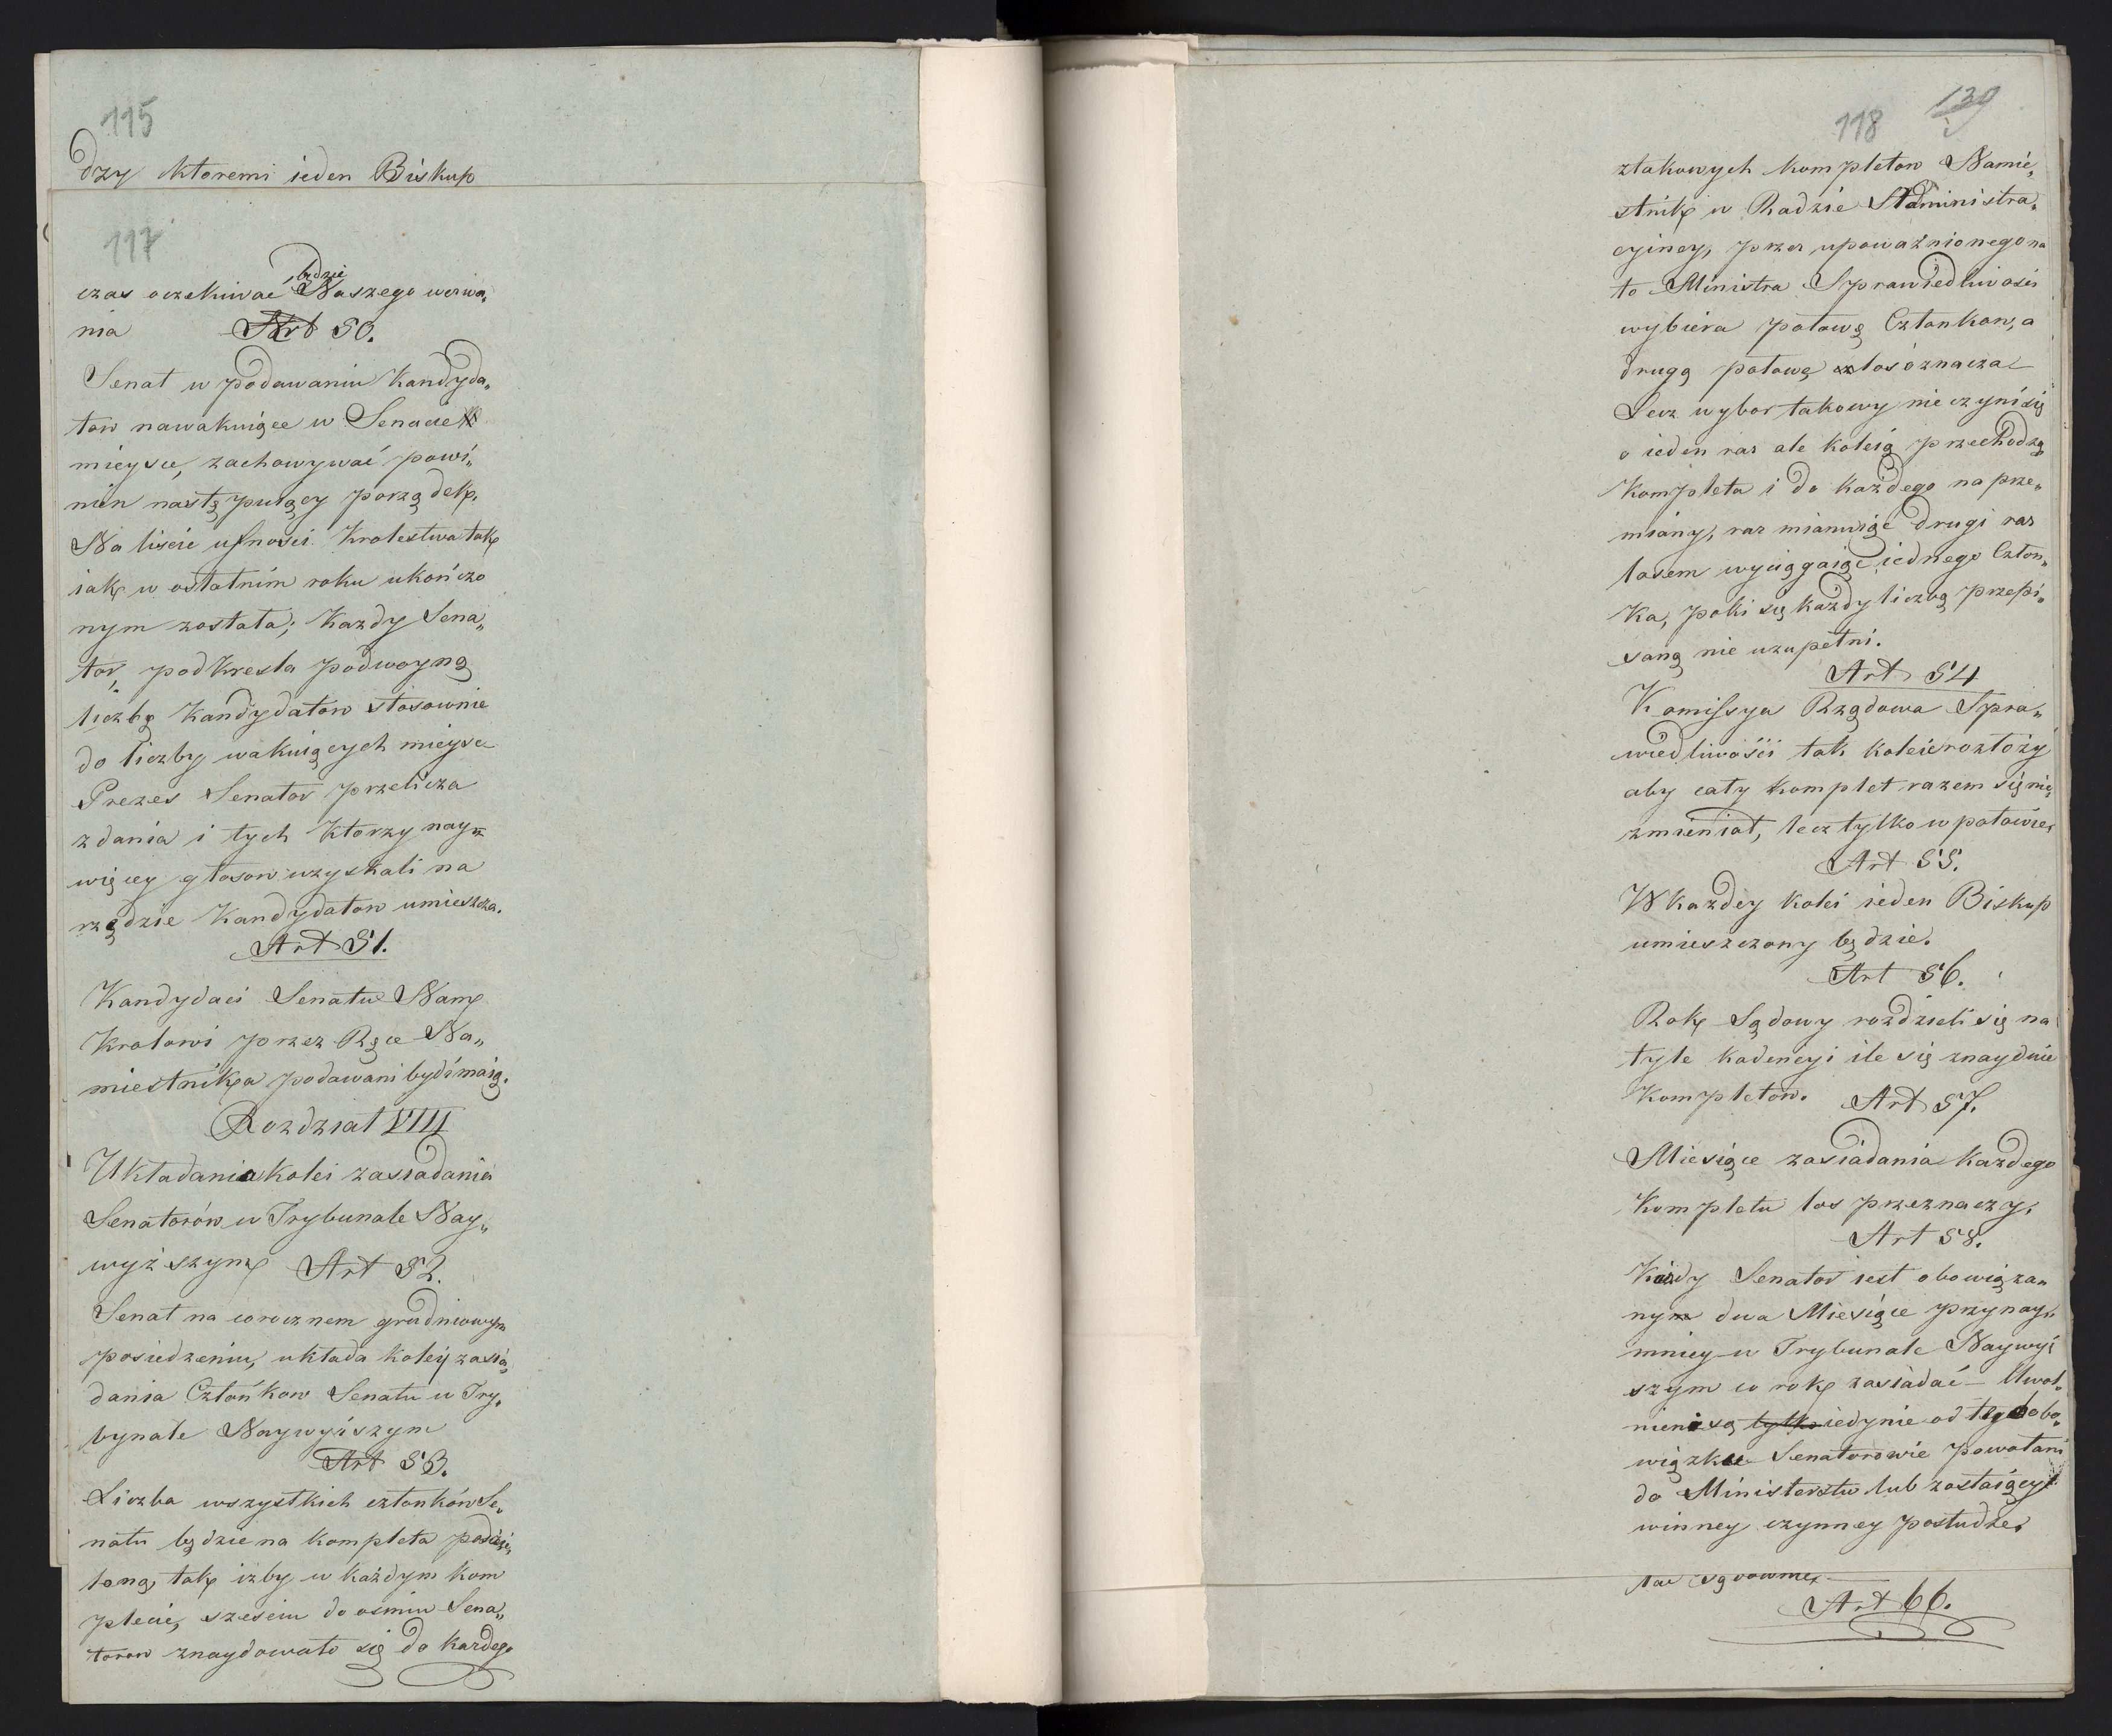 115
dzy ktoremi ieden Biskup
117
będzie
czas oczekiwać Naszego wezwa„
nia Art 50.
Senat w podawaniu Kandyda„
tow na wakuiące w Senacie
mieysce, zachowywać powi„
nien następuiący porządek.
Na liscie ufnosci Krolestwa tak
iak w ostatnim roku ukończo
nym została; Kazdy Sena„
tor, podkresla podwoyną
liczbę Kandydatow stosownie
do liczby wakuiących mieysc
Prezes Senator przelicza
zdania i tych ktorzy nay„
więcey głosow uzyskali na
rzędzie Kandydatow umieszcza.
Art 51.
Kandydaci Senatu Nam
Krolowi przez Ręce Na„
miestnika podawani bydź maią.
Rozdział VIII
Układania kolei zasiadania
Senatorów w Trybunale Nay„
wyższym Art 52.
Senat na corocznem grudniowym
posiedzeniu, układa koleij zasia„
dania Członkow Senatu w Try„
bynale Naywyższym
Art 53.
Liczba wszystkich członków Se„
natu będzie na kompleta podzie„
loną, tak izby w każdym kom
plecie, szesciu do osmiu Sena„
torow znaydowało się do kazdego
118 139
ztakowych kompletow Namie„
stnik w Radzie Administra„
cyiney, przez upoważnionego na
to Ministra Sprawiedliwosci
wybiera połowę Członkow, a
drugą połowę los oznacza
Lecz wybor takowy nie czyni się
o ieden raz ale koleią przechodzą
Kompleta i do każdego na prze„
miany, raz mianuiąc drugi raz
losem wyciągaiąc iednego Człon„
ka, poki się kazdy liczbą przepi„
saną nie uzupełni.
Art 54
Komissya Rządowa Spra„
wiedliwości tak koleie rozłoży
aby cały komplet razem się nie
zmieniał, lecz tylko w połowie.
Art 55.
W kazdey kolei ieden Biskup
umieszczony będzie.
Art 56.
Rok Sądowy rozdzieli się na
tyle kadencyi ile się znayduie
Kompletow. Art 57.
Miesiące zasiadania kazdego
Kompletu los przeznaczy.
Art 58.
Każdy Senator iest obowiąza„
nym dwa Miesiące przynay„
mniey w Trybunale Naywyż
szym w rok zasiadać – Uwol„
nieni są tylko iedynie od tego obo„
wiązku Senatorowie powołani
do Ministerstw lub zostaiący
w inney czynney posłudze.
Art 66.